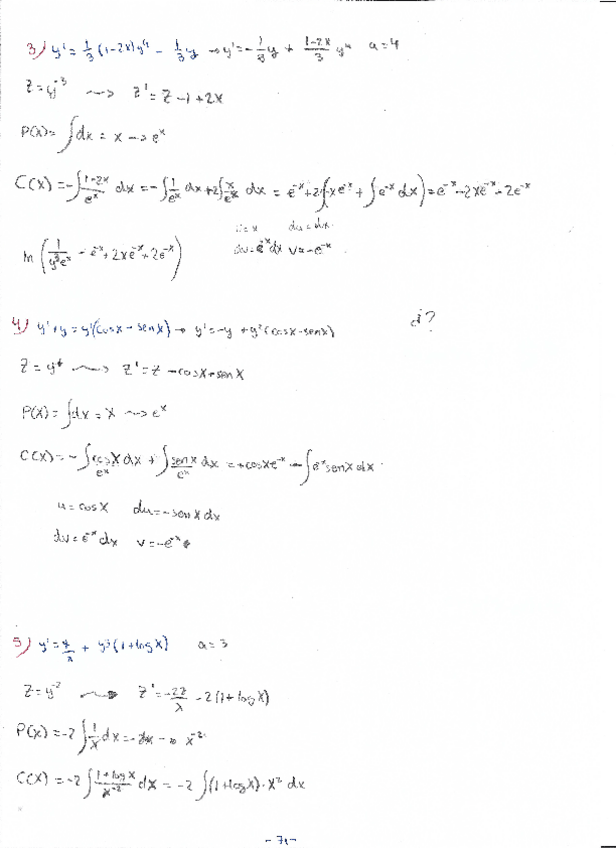 3) y' = 1/3 (1-2x)y⁴ - 1/3 y → y' = -1/3 y + (1-2x)/3 y⁴ a = 4
z = y⁻³ ⟿ z' = z - 1 + 2x
P(x) = ∫dx = x → eˣ
C(x) = -∫(1-2x)/eˣ dx = -∫1/eˣ dx + 2∫x/eˣ dx = e⁻ˣ + 2(-xe⁻ˣ + ∫e⁻ˣ dx) = e⁻ˣ - 2xe⁻ˣ - 2e⁻ˣ
u = x du = dx
dv = e⁻ˣ dx v = -e⁻ˣ
ln (1/(y³eˣ) - e⁻ˣ + 2xe⁻ˣ + 2e⁻ˣ)
4) y' + y = y²(cosx - senx) → y' = -y + y²(cosx - senx) ¿?
z = y⁻¹ ⟿ z' = z - cosx + senx
P(x) = ∫dx = x ⟿ eˣ
C(x) = -∫cosx/eˣ dx + ∫senx/eˣ dx = +cosxe⁻ˣ - ∫eˣsenx dx
u = cosx du = -senx dx
dv = e⁻ˣ dx v = -e⁻ˣ
5) y' = y/x + y³(1+logx) a = 3
z = y⁻² ⟿ z' = -2z/x - 2(1+logx)
P(x) = -2∫1/x dx = → x⁻²
C(x) = -2∫(1+logx)/x⁻² dx = -2∫(1+logx)·x² dx
- 71 -